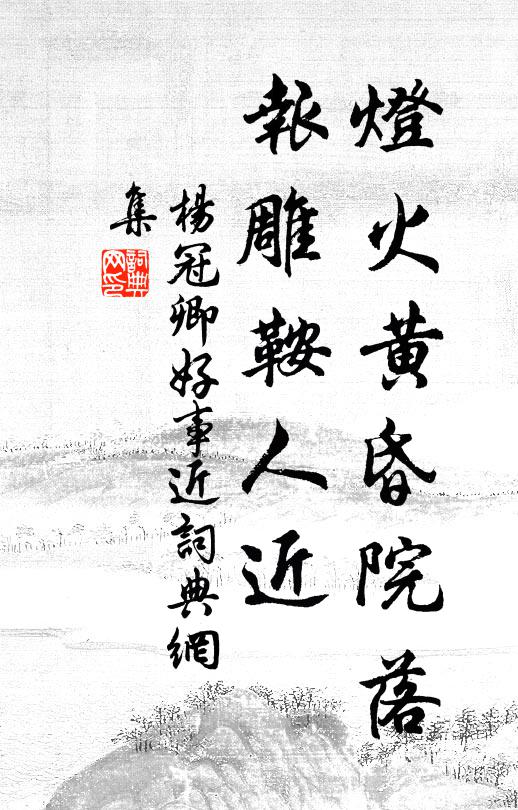 燈火黃昏院落
報雕鞍人近
楊冠卿好事近詞典網
集
詞典網印